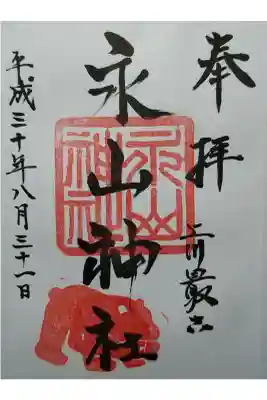 奉拝
上川最古
永山神社
永山神社
平成三十年八月三十一日